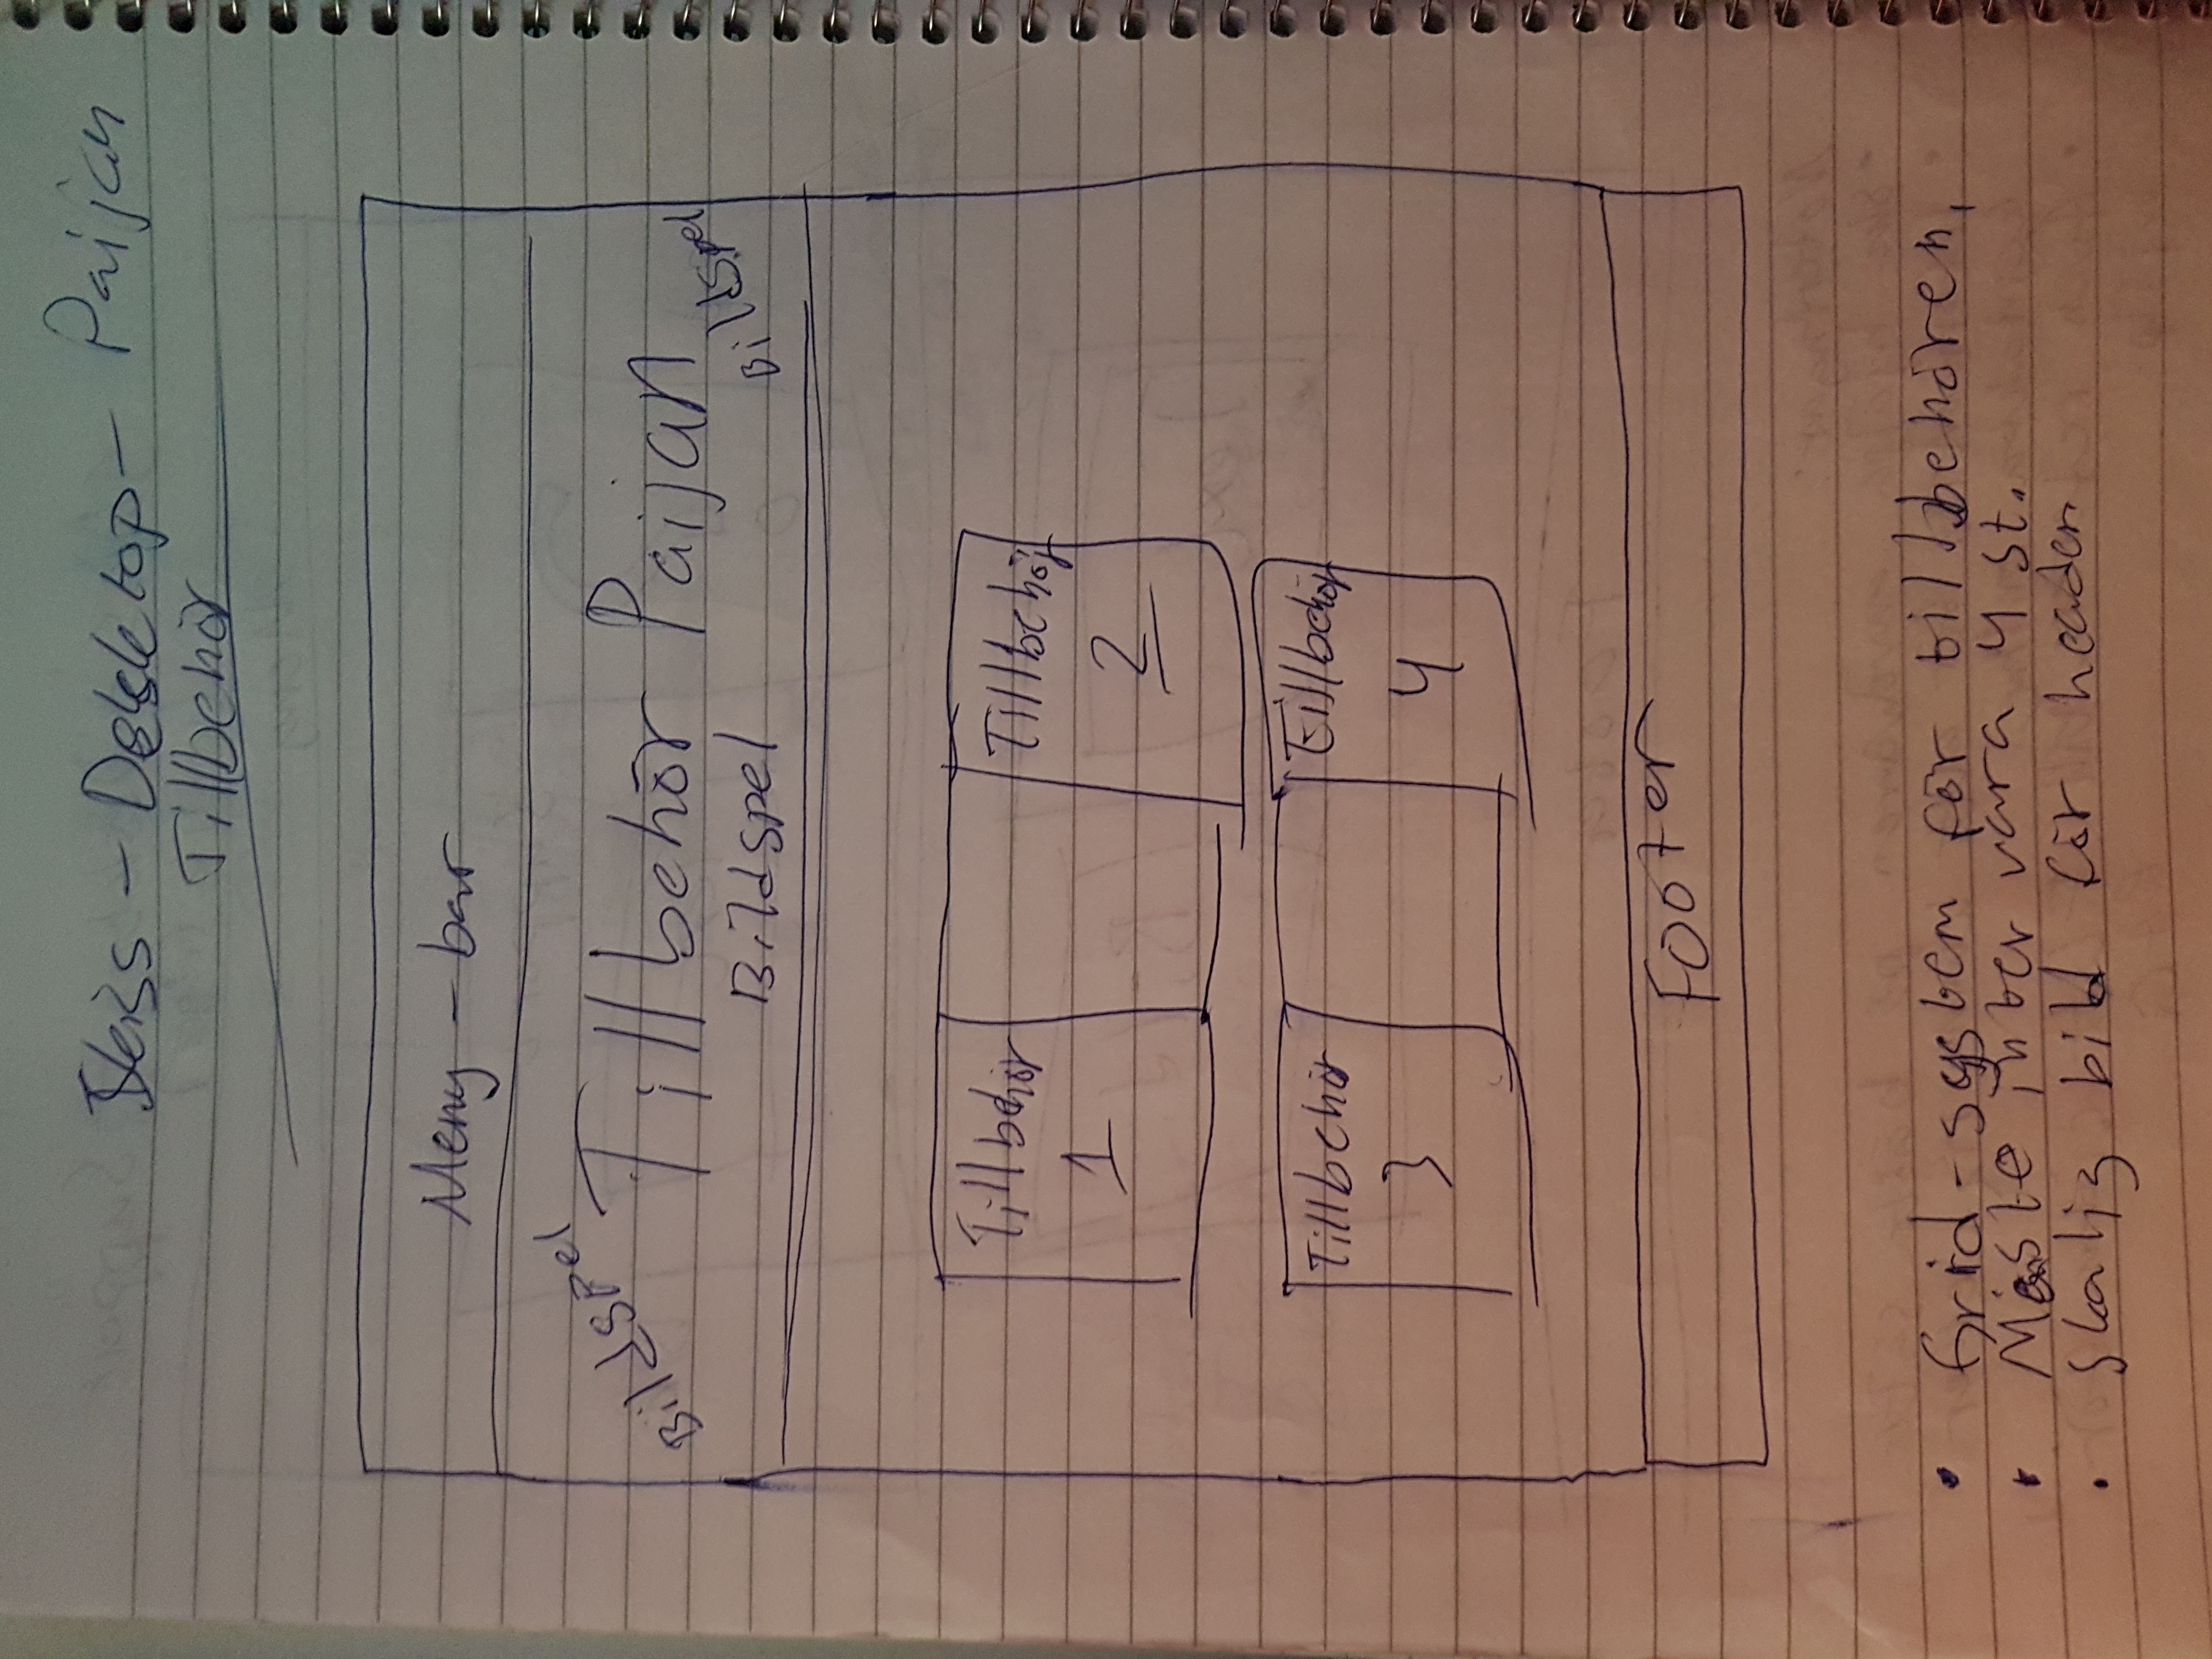 Skiss - Desktop - Paijan
Tillbehör
Meny - bar
Bildspel
Tillbehör Paijan
Bildspel
Bildspel
Tillbehör
1
Tillbehör
2
Tillbehör
3
Tillbehör
4
Footer
• Grid-system för tillbehören,
• Måste inter vara 4 st.
• Skalig bild för header